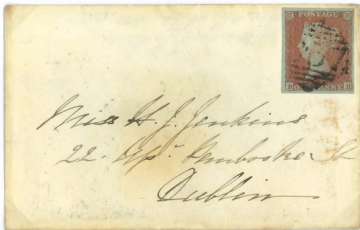 POSTAGE
ONE PENNY
Miss H. J. Jenkins
22. Upr. Pembroke St
Dublin